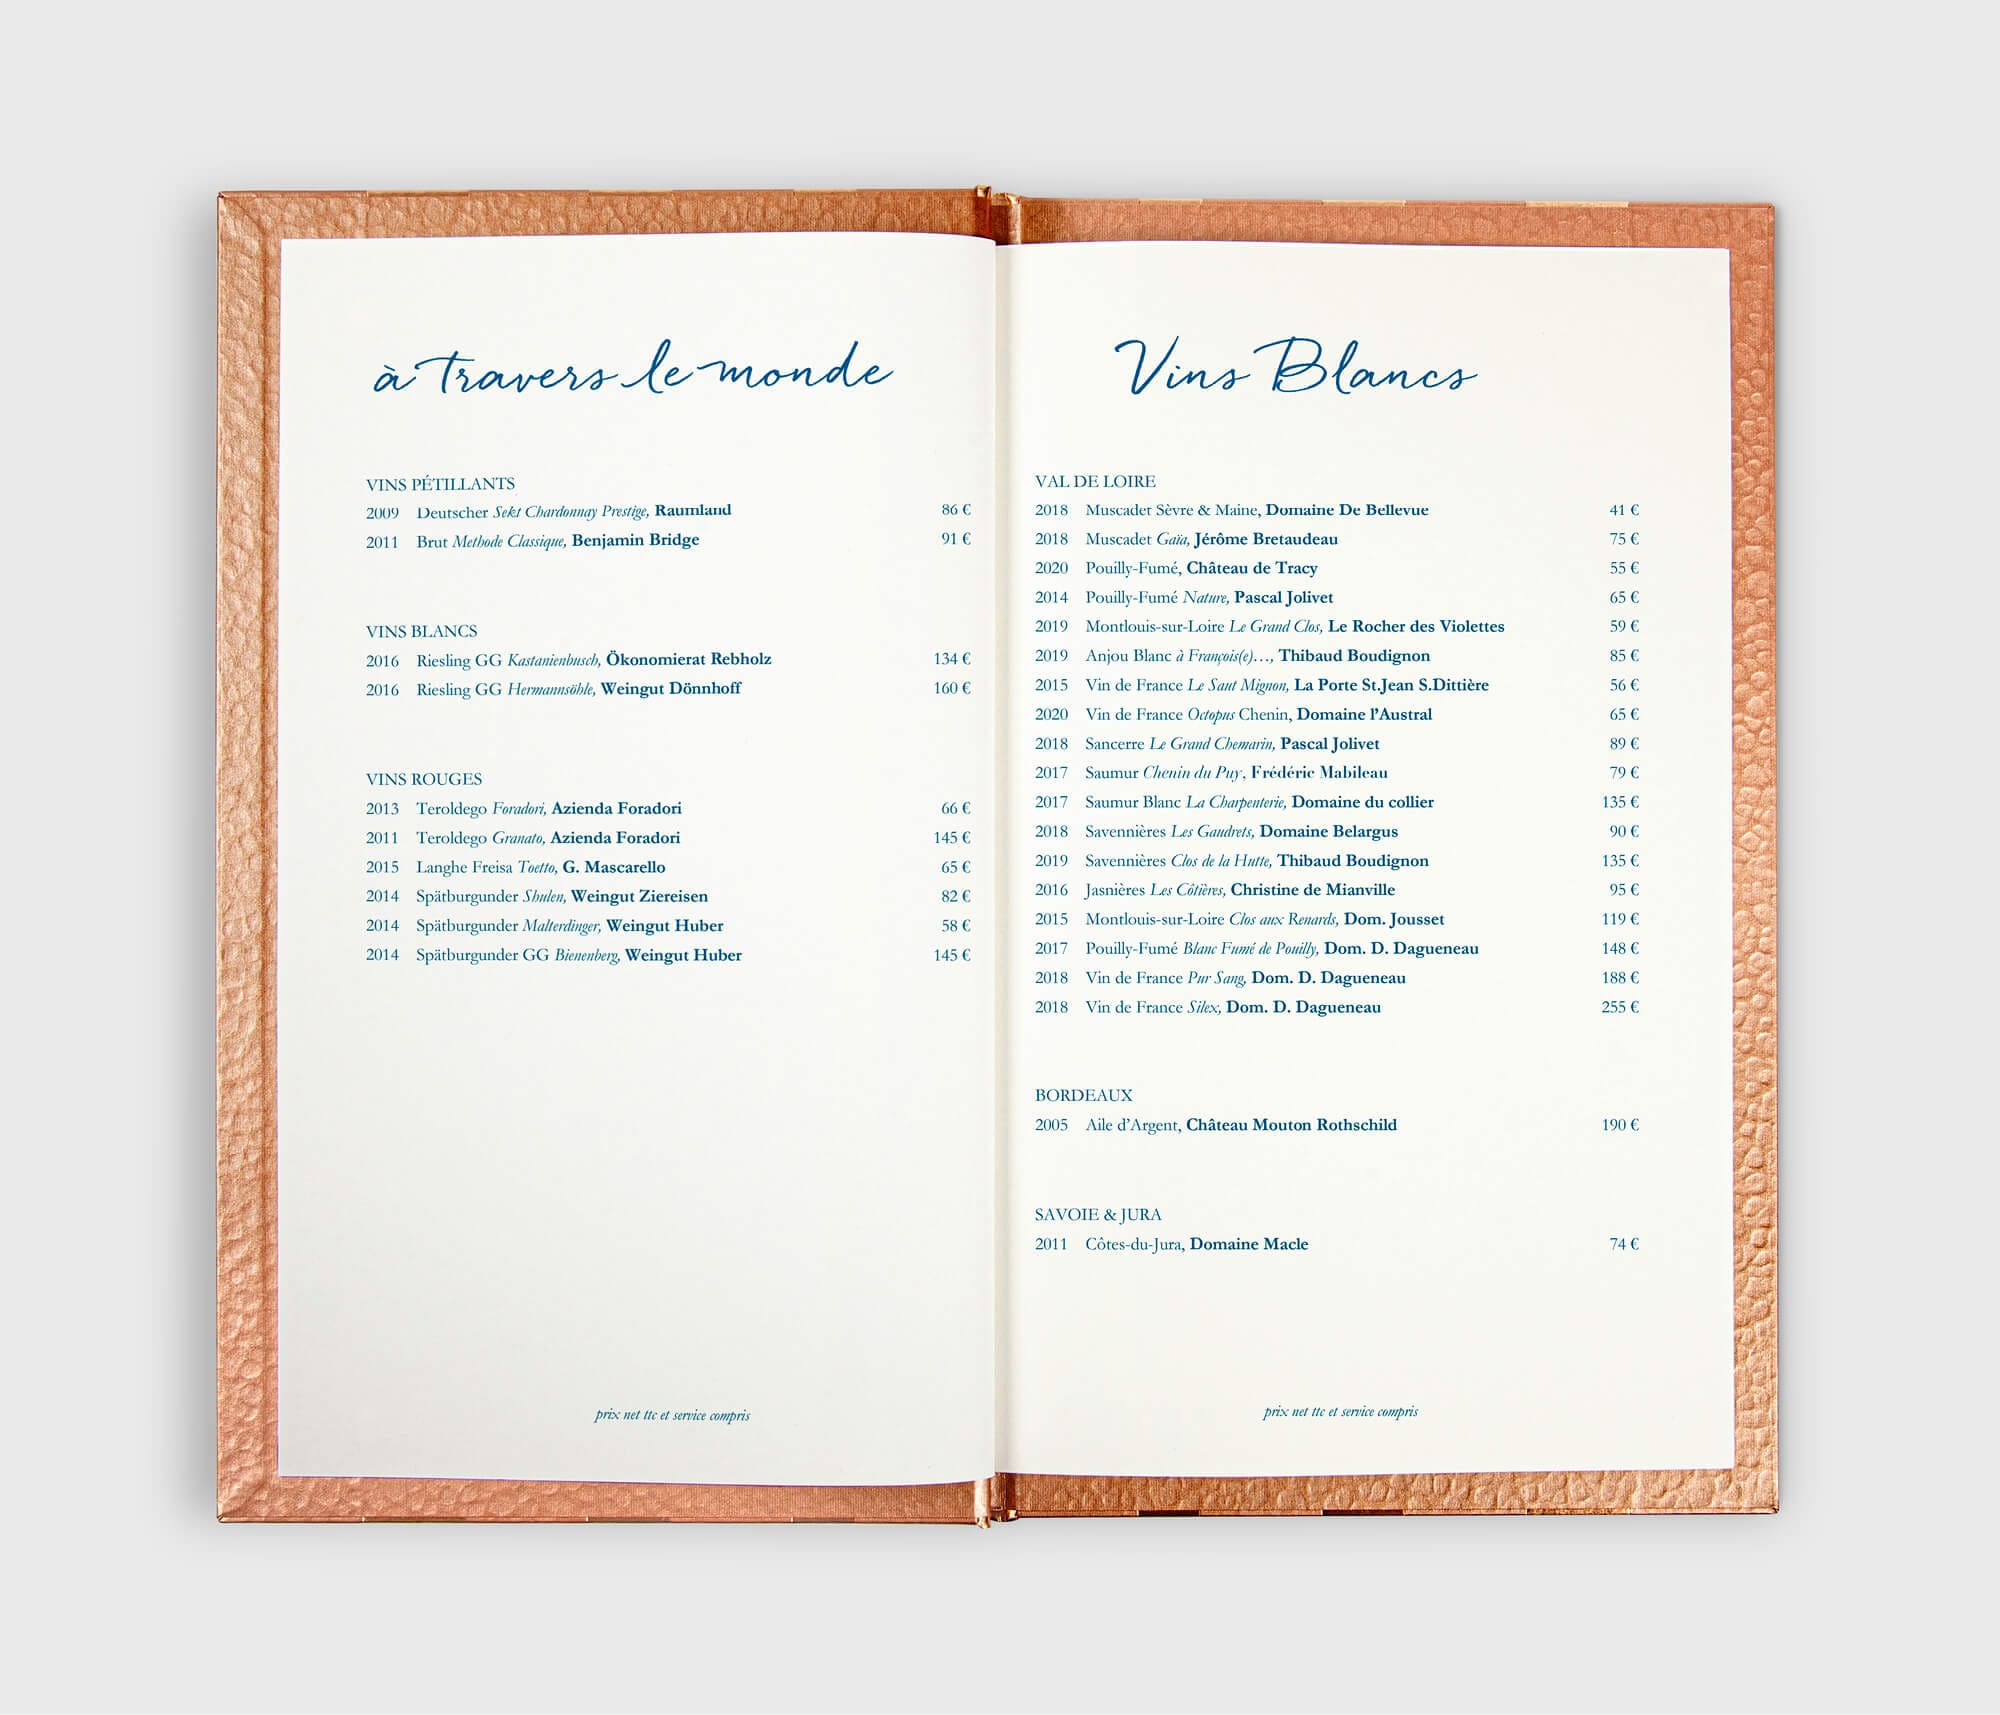 à travers le monde
VINS PÉTILLANTS
2009 Deutscher Sekt Chardonnay Prestige, Raumland 86 €
2011 Brut Methode Classique, Benjamin Bridge 91 €
VINS BLANCS
2016 Riesling GG Kastanienbusch, Ökonomierat Rebholz 134 €
2016 Riesling GG Hermannsöhle, Weingut Dönnhoff 160 €
VINS ROUGES
2013 Teroldego Foradori, Azienda Foradori 66 €
2011 Teroldego Granato, Azienda Foradori 145 €
2015 Langhe Freisa Toetto, G. Mascarello 65 €
2014 Spätburgunder Shulen, Weingut Ziereisen 82 €
2014 Spätburgunder Malterdinger, Weingut Huber 58 €
2014 Spätburgunder GG Bienenberg, Weingut Huber 145 €
prix net ttc et service compris
Vins Blancs
VAL DE LOIRE
2018 Muscadet Sèvre & Maine, Domaine De Bellevue 41 €
2018 Muscadet Gaïa, Jérôme Bretaudeau 75 €
2020 Pouilly-Fumé, Château de Tracy 55 €
2014 Pouilly-Fumé Nature, Pascal Jolivet 65 €
2019 Montlouis-sur-Loire Le Grand Clos, Le Rocher des Violettes 59 €
2019 Anjou Blanc à François(e)…, Thibaud Boudignon 85 €
2015 Vin de France Le Saut Mignon, La Porte St.Jean S.Dittière 56 €
2020 Vin de France Octopus Chenin, Domaine l’Austral 65 €
2018 Sancerre Le Grand Chemarin, Pascal Jolivet 89 €
2017 Saumur Chenin du Puy, Frédéric Mabileau 79 €
2017 Saumur Blanc La Charpenterie, Domaine du collier 135 €
2018 Savennières Les Gaudrets, Domaine Belargus 90 €
2019 Savennières Clos de la Hutte, Thibaud Boudignon 135 €
2016 Jasnières Les Côtières, Christine de Mianville 95 €
2015 Montlouis-sur-Loire Clos aux Renards, Dom. Jousset 119 €
2017 Pouilly-Fumé Blanc Fumé de Pouilly, Dom. D. Dagueneau 148 €
2018 Vin de France Pur Sang, Dom. D. Dagueneau 188 €
2018 Vin de France Silex, Dom. D. Dagueneau 255 €
BORDEAUX
2005 Aile d’Argent, Château Mouton Rothschild 190 €
SAVOIE & JURA
2011 Côtes-du-Jura, Domaine Macle 74 €
prix net ttc et service compris